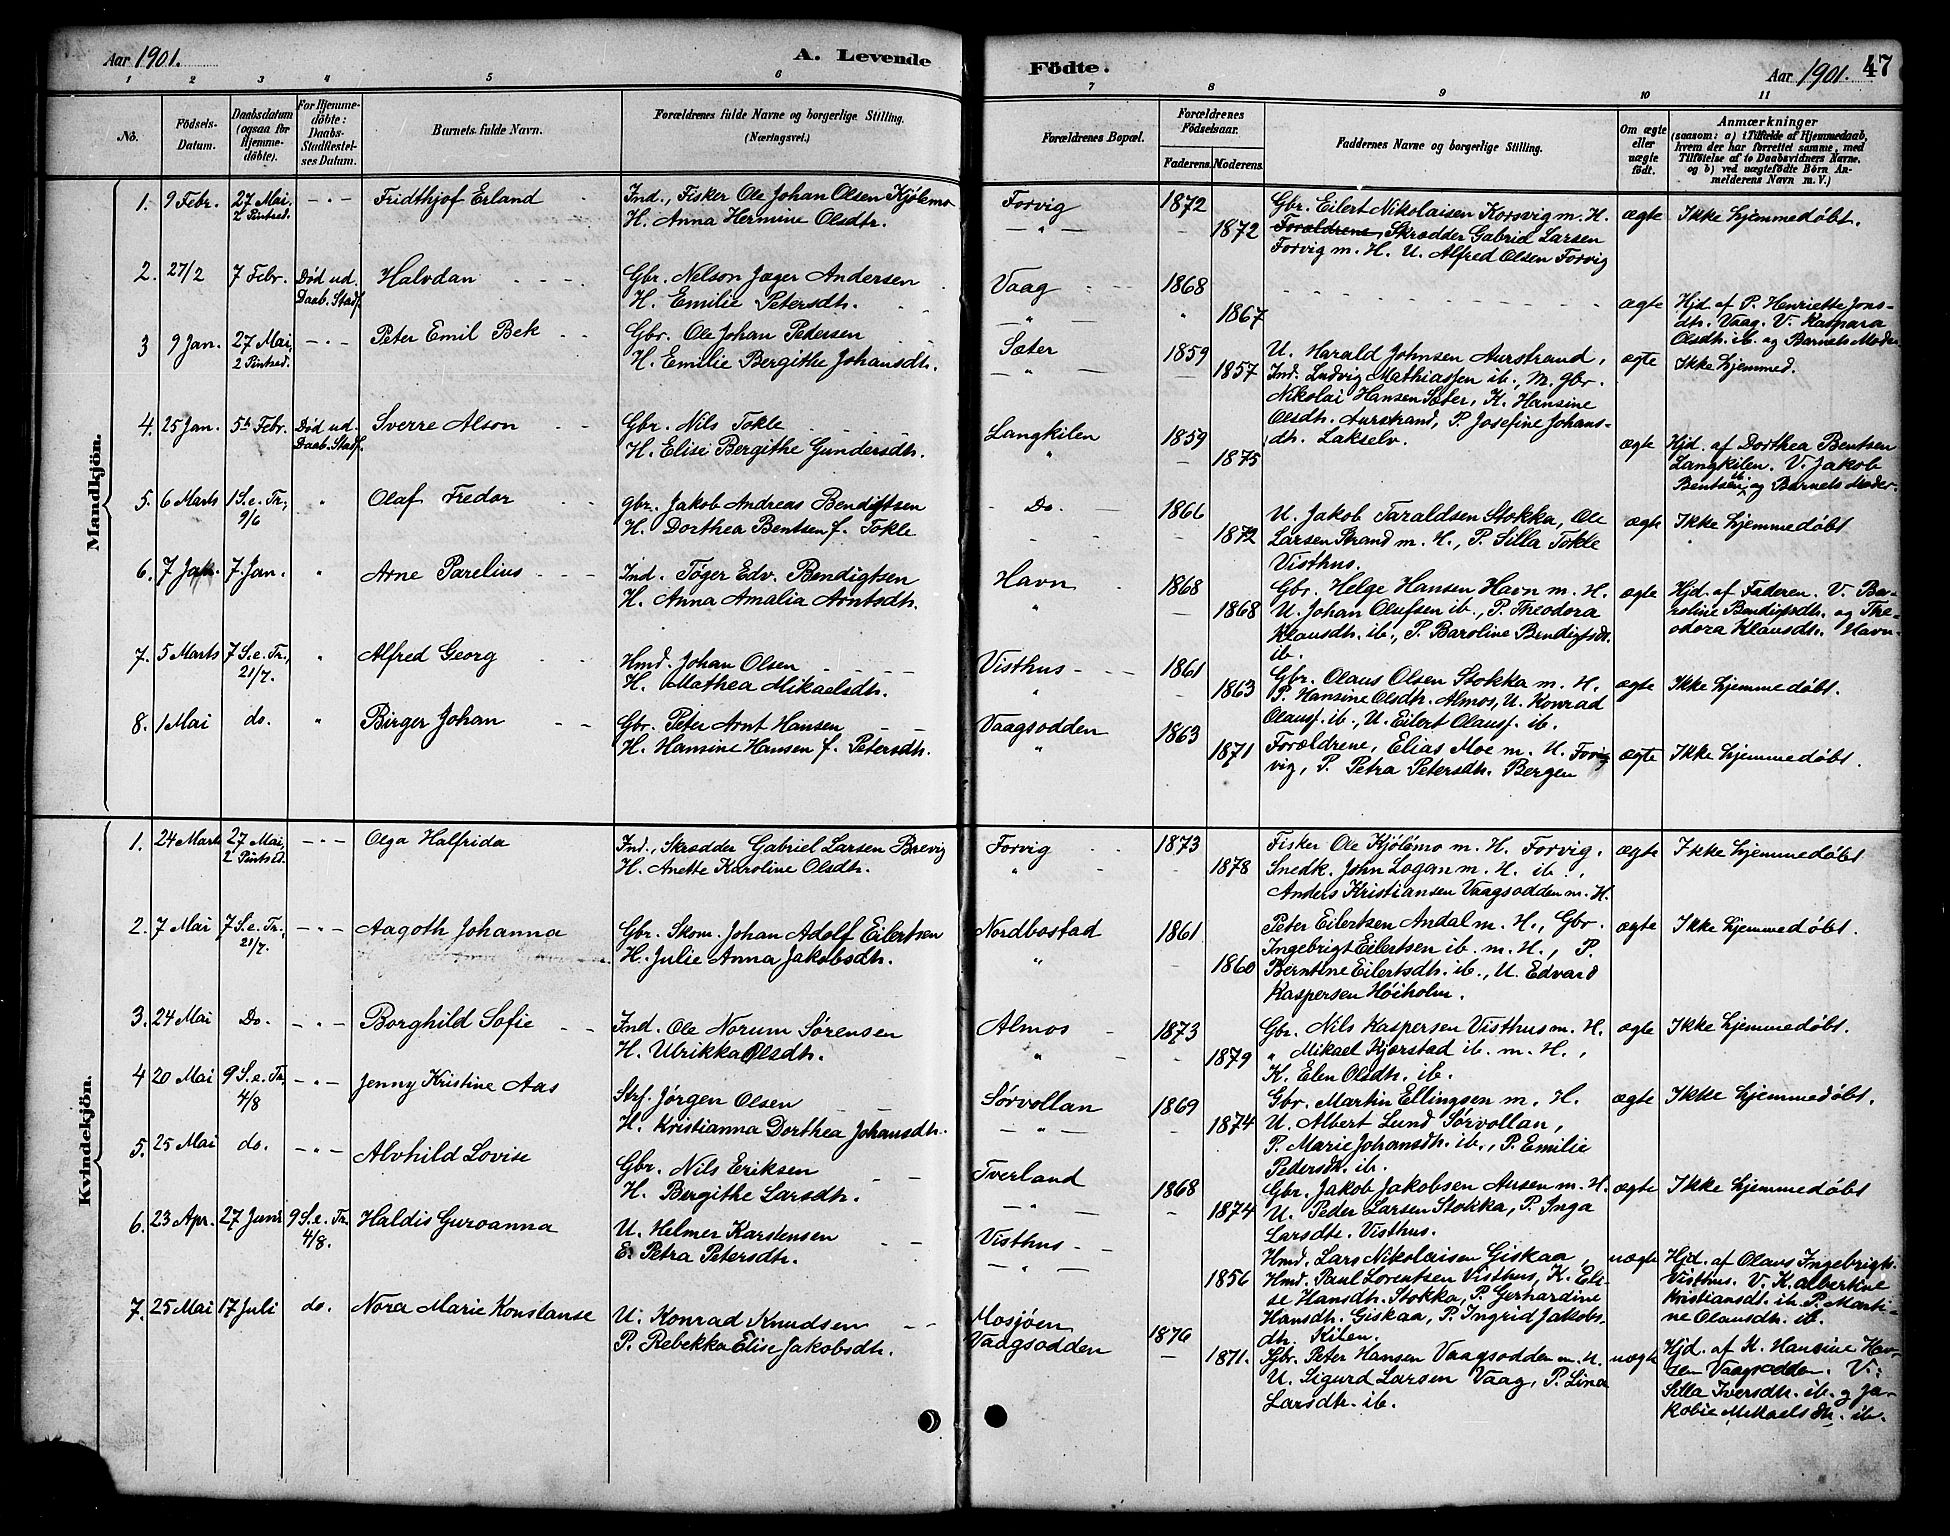 Aar 1901.
A. Levende
Födte.
Aar 1901.
47
1 2 3 4 5 6 7 8 9 10 11
No.
Födsels-Datum.
Daabsdatum (ogsaa för Hjemmedöbte).
For Hjemmedöbte: Daabs-Stadfæstelses Datum.
Barnets fulde Navn.
Forældrenes fulde Navne og borgerlige Stilling.
(Næringsvei.)
Forældrenes Bopæl.
Forældrenes Födselsaar.
Faderens. Moderens.
Faddernes Navne og borgerlige Stilling.
Om ægte eller uægte födt.
Anmærkninger
(saasom: a) i Tilfælde af Hjemmedaab, hvem der har forrettet samme, med Tilföielse af to Daabsvidners Navne, og b) ved uægtefödte Börn Anmelderens Navn m. V.)
Mandkjön.
1. 9 Febr. 27 Mai, 2 Pintsed. - " - Fridthjof Erland Ind., Fisker Ole Johan Olsen Kjölemo Forvig 1872 Gbr. Eilert Nikolaisen Korsvig m. H. ægte Ikke hjemmedøbt.
H. Anna Hermine Olsdtr. - " - 1872 Forældrene, Skrædder Gabriel Larsen
Forvig m. H. U. Alfred Olsen Forvig
2. 27/2 7 Febr. Død ud. Daab. Stadf. Halvdan Gbr. Nelson Jæger Andersen Vaag 1868 ægte Hjd. af P. Henriette Jons-
H. Emilie Petersdtr. " 1867 dtr. Vaag. V. Kaspara
Olsdtr. ib. og Barnets Moder
3 9 Jan. 27 Mai, 2 Pintsed. - " - Peter Emil Bek Gbr. Ole Johan Pedersen Sæter 1859 U. Harald Johnsen Aurstrand, ægte Ikke hjemmed.
H. Emilie Bergithe Johansdtr. - " - 1857 Ind. Ludvig Mathiassen ib., M. Gbr.
Nikolai Hansen Sæter, K. Hansine
Olsdtr. Aurstrand, P. Josefine Johans-
dtr. Lakselv.
4. 25 Jan. 5te Febr. Død ud. Daab. Stadf. Sverre Alson Gbr. Nils Tokle Langkilen 1859 ægte Hjd. af Dorthea Bentsen
H. Elisi Bergithe Gundersdtr. " 1875 Langkilen. V. Jakob
Bentsen ib. og Barnets Moder.
5. 6 Marts 1 S. e. Tr., 9/6 " Olaf Fredor Gbr. Jakob Andreas Bendigtsen Do. 1866 U. Jakob Taraldsen Stokka, Ole ægte Ikke hjemmedøbt
H. Dorthea Bentsen f. Tokle 1872 Larsen Strand m. H., P. Silla Tokle
Visthus.
6. 7 Jan. 7. Jan. " Arne Parelius Ind. Tøger Edv. Bendigtsen Havn 1868 Gbr. Helge Hansen Havn m. H. ægte Hjd. af Faderen. V. Ba-
H. Anna Amalia Arntsdtr. " 1868 U. Johan Olufsen ib., P. Theodora roline Bendigtsdtr. og The-
Klausdtr. ib., P. Baroline Bendigtsdt. odora Klausdtr. Havn
ib.
7. 5 Marts 7 S. e. Tr., 21/7. " Alfred Georg Hmd. Johan Olsen Visthus 1861 Gbr. Olaus Olsen Stokka m. H. ægte Ikke hjemmedøbt.
H. Mathea Mikaelsdtr. " 1863 P. Hansine Olsdtr. Almos, U. Konrad
Olausf. ib., U. Eilert Olausf. ib.
8. 1 Mai do. " Birger Johan Gbr. Peter Arnt Hansen Vaagsodden 1863 Forældrene, Elias Moe m. H. Forvig ægte Ikke hjemmedøbt.
H. Hansine Hansen f. Petersdtr. " 1871 vig, P. Petra Petersdtr. Bergen
Kvindekjön.
1. 24 Marts 27 Mai, 2 Pintsed. - " - Olga Halfrida Ind., Skrædder Gabriel Larsen Brevig Forvig 1873 Fisker Ole Kjölemo m. H. Forvig. ægte Ikke hjemmedøbt.
H. Anette Karoline Olsdtr. " 1878 Snedk. John Logam m. H. ib.,
Anders Kristiansen Vaagsodden m. H.
2. 7 Mai 7 S. e. Tr., 21/7. - " - Aagoth Johanna Gbr. Skom. Johan Adolf Eilertsen Nordbostad 1861 Peter Eilertsen Andal m. H., Gbr. ægte Ikke hjemmedøbt.
H. Julie Anna Jakobsdtr. " 1860 Ingebrigt Eilertsen ib. m. H., P.
Berntine Eilertsdtr. ib., U. Edvard
Kaspersen Høiholm.
3. 24 Mai Do. - " - Borghild Sofie Ind. Ole Norum Sørensen Almos 1873 Gbr. Nils Kaspersen Visthus m. H. ægte Ikke hjemmedøbt.
H. Ulrikka Olsdtr. " 1879 " Mikael Kjærstad ib. m. H.,
K. Elen Olsdtr. ib.
4 20 Mai 9 S. e. Tr. 4/8 - " - Jenny Kristine Aas Strf. Jørgen Olsen Sørvollan 1869 Gbr. Martin Ellingsen m. H. ægte Ikke hjemmedøbt.
H. Kristianna Dorthea Johansdtr. - " - 1874 U. Albert Lund Sørvollan,
P. Marie Johansdtr. ib., P. Emilie
Pedersdt. ib.
5. 25 Mai do. - " - Alvhild Lovise Gbr. Nils Eriksen Tverland 1868 Gbr. Jakob Jakobsen Ausen m. H. ægte Ikke hjemmedøbt
H. Bergithe Larsdtr. - " - 1874 U. Peder Larsen Stokka, P. Inga
Larsdtr. Visthus.
6. 23 Apr. 27 Juni 9 S. e. Tr. 4/8. Haldis Guroanna U. Helmer Karstensen Visthus Hmd. Lars Nikolaisen Giskaa, uægte Hjd. af Olaus Ingebrigts.
E. Petra Petersdtr. - " - 1856 Hmd. Paul Lorentsen Visthus, K. El- Visthus. V. K. Albertine
se Hansdtr. Stokka, P. Gerhardine Kristiansdt. ib. P. Marti-
Hansdtr. Giskaa, P. Ingrid Jakobs. ne Olausdtr. ib.
dtr. Kilen.
7. 25 Mai 17 Juli do. Nora Marie Konstanse U. Konrad Knudsen Mosjøen 1876 Gbr. Peter Hansen Vaagsodden m. H. uægte Hjd. af K. Hansine Han-
P. Rebekka Elise Jakobsdtr. Vaagsodden 1871. U. Sigurd Larsen Vaag, P. Lina sen Vaagsodden. V.
Larsdtr. ib. Silla Iversdtr. ib. og Ja-
kobie Mikaelsdtr. ib.